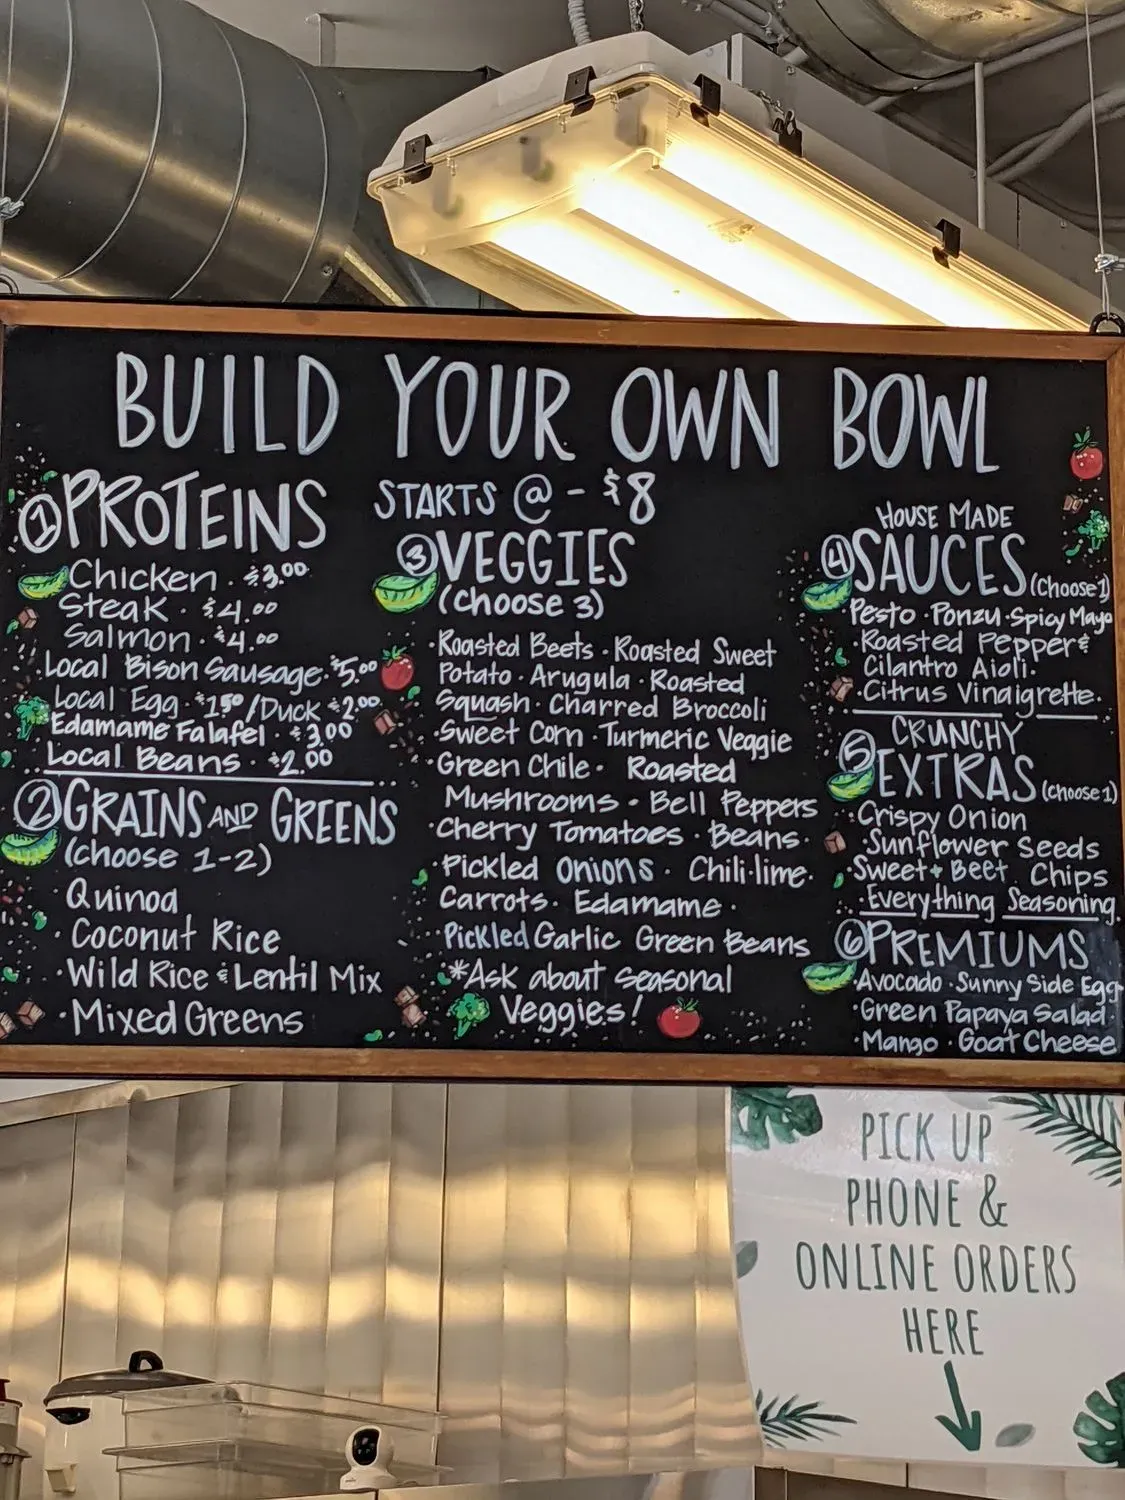 BUILD YOUR OWN BOWL
STARTS @ - $8
① PROTEINS
Chicken · $3.00
Steak · $4.00
Salmon · $4.00
Local Bison Sausage · $5.00
Local Egg · $1.50 / Duck · $2.00
Edamame Falafel · $3.00
Local Beans · $2.00
② GRAINS AND GREENS
(choose 1-2)
· Quinoa
· Coconut Rice
· Wild Rice & Lentil Mix
· Mixed Greens
③ VEGGIES
(choose 3)
· Roasted Beets · Roasted Sweet
Potato · Arugula · Roasted
Squash · Charred Broccoli
· Sweet Corn · Turmeric Veggie
· Green Chile · Roasted
Mushrooms · Bell Peppers
· Cherry Tomatoes · Beans ·
· Pickled Onions · Chili-lime ·
Carrots · Edamame ·
Pickled Garlic Green Beans
*Ask about seasonal
Veggies!
HOUSE MADE
④ SAUCES (choose 1)
Pesto · Ponzu · Spicy Mayo
· Roasted Pepper &
Cilantro Aioli ·
· Citrus Vinaigrette ·
CRUNCHY
⑤ EXTRAS (choose 1)
· Crispy Onion
· Sunflower Seeds
· Sweet + Beet Chips
· Everything Seasoning
⑥ PREMIUMS
· Avocado · Sunny Side Egg
· Green Papaya Salad ·
· Mango · Goat Cheese
PICK UP
PHONE &
ONLINE ORDERS
HERE